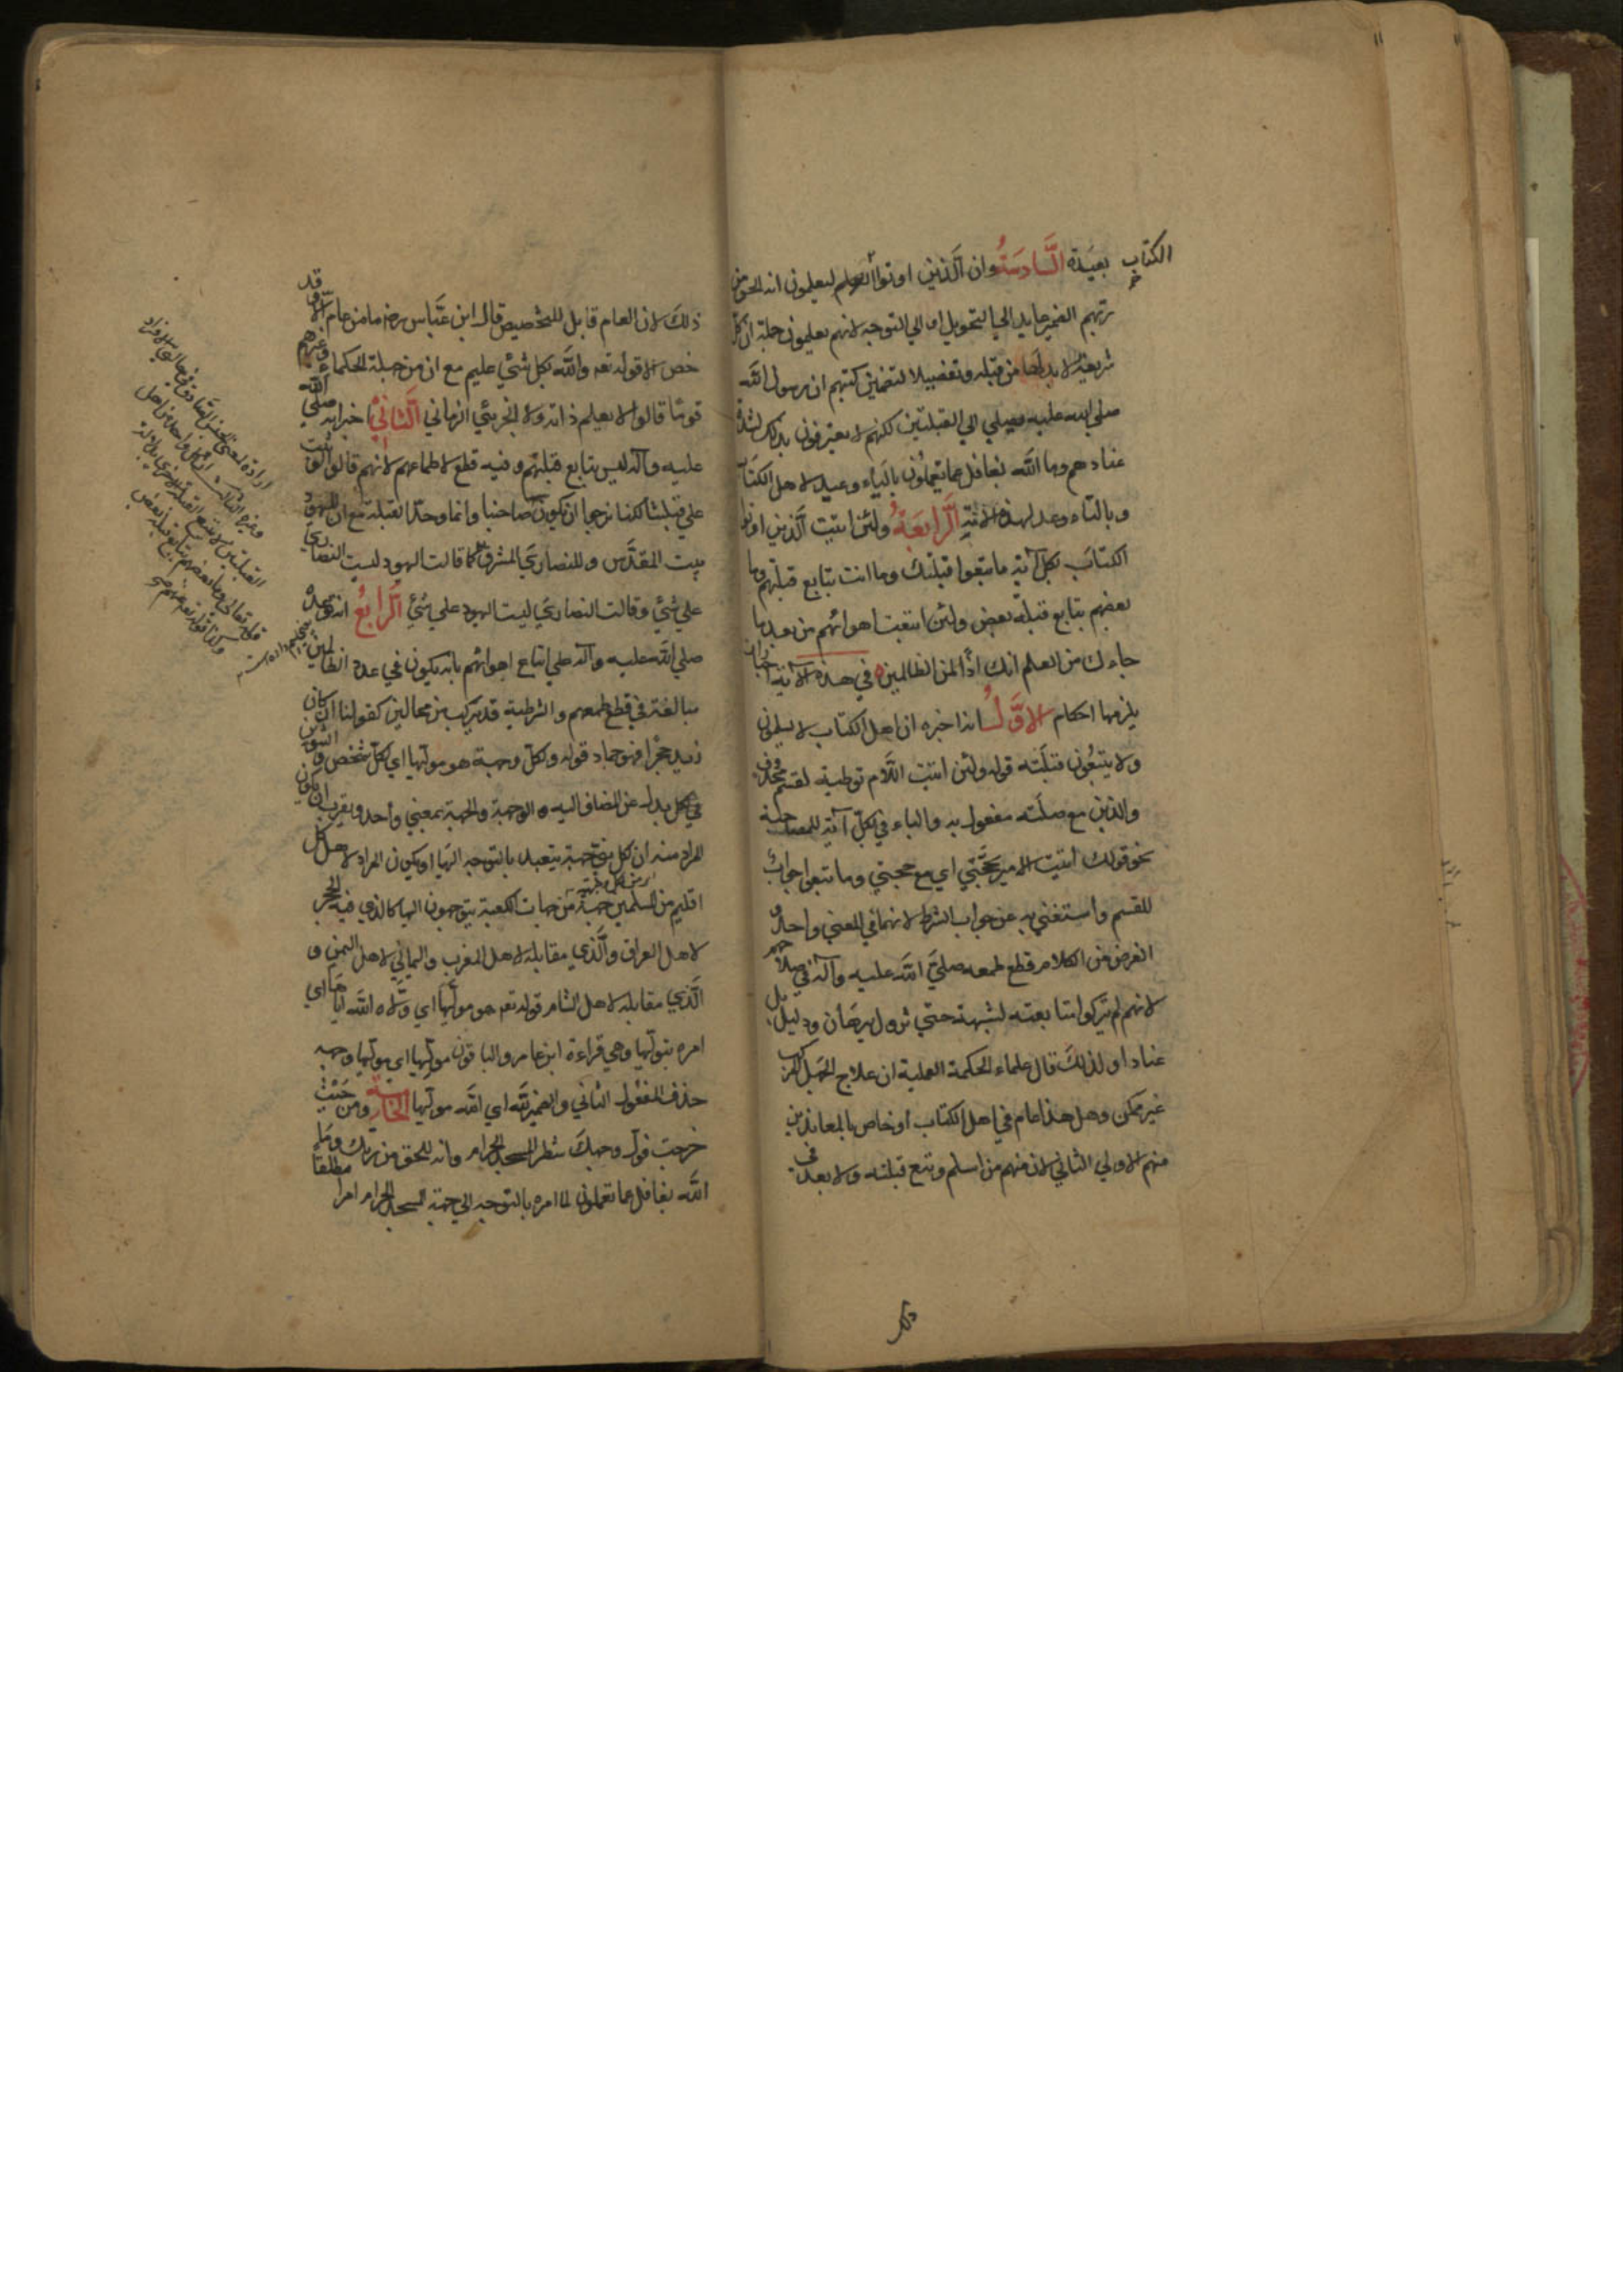 الكتاب بعيدة السادسة وان الذين اوتوا العلم ليعلمون انه الحق من
ربهم الضمير عايد الي التحويل او الي التوجه لانهم يعلمون جملة ان كل
شريعة لا بد لها من قبلة وتفصيلا لتضمن كتبهم ان رسول الله
صلي الله عليه يصلي الي القبلتين لكنهم لا يعترفون بذلك لشدة
عنادهم وما الله بغافل عما يعملون بالياء وعيد لاهل الكتاب
وبالتاء وعد لهذه الامة الرابعة ولئن اتيت الذين اوتوا
الكتاب بكل آية ما تبعوا قبلتك وما انت بتابع قبلتهم وما
بعضهم بتابع قبلة بعض ولئن اتبعت اهوائهم من بعد ما
جاءك من العلم انك اذا لمن الظالمين في هذه الآية
يلزمها احكام الاول انه اخبره ان اهل الكتاب لا يسلمون
ولا يتبعون قبلته قوله ولئن اتيت اللام توطية لقسم محذوف
والذين مع صلته مفعول به والباء في بكل آية للمصاحبة
نحو قولك اتيت الامير بحجتي اي مع حجتي وما تبعوا جواب
للقسم واستغني به عن جواب الشرط لانهما في المعني واحد و
الغرض من الكلام قطع طمعه صلي الله عليه وآله في صلاحهم
لانهم لم يتركوا متابعته لشبهة حتي تزول ببرهان ودليل بل
عنادا ولذلك قال علماء الحكمة العملية ان علاج الجهل المركب
غير ممكن وهل هذا عام في اهل الكتاب او خاص بالمعاندين
منهم الاولي الثاني لان منهم من اسلم وتبع قبلته ولا بعد في
ذلك
ذلك لان العام قابل للتخصيص قال ابن عباس رض ما من عام الا وقد
خص الا قوله تعه والله بكل شئي عليم مع ان من جملة الحكماء وغيرهم
قوما قالوا لا يعلم ذاته ولا الجزئي الزماني الثاني اخبر انه صلي الله
عليه وآله ليس بتابع قبلتهم وفيه قطع لاطماعهم لانهم قالوا لو ثبت
علي قبلتنا لكنا نرجوا ان يكون صاحبنا وانما وحد القبلة مع ان لليهود
بيت المقدس وللنصاري المشرق كما قالت اليهود ليست النصاري
علي شئي وقالت النصاري ليست اليهود علي شئي الرابع انه توعده
صلي الله عليه وآله علي اتباع اهوائهم بانه يكون في عدة الظالمين
مبالغة في قطع طمعهم والشرطية قد يتركب من محالين كقولنا ان كان
زيد حجرا فهو جماد قوله ولكل وجهة هو موليها اي لكل شخص والتنوين
في كل بدل عن المضاف اليه والوجهة والجهة بمعني واحد ويقرب ان يكون
المراد منه ان كل متوجهة يتعبد بالتوجه اليها او يكون المراد لاهل كل
اقليم من المسلمين جهة من جهات الكعبة يتوجهون اليها كالذي فيه الحجر
لاهل العراق والذي مقابله لاهل المغرب واليماني لاهل اليمن و
الذي مقابله لاهل الشام قوله تعه هو موليها اي ولاه الله اياها اي
امره بتوليها وهي قراءة ابن عامر والباقون موليها اي موليها وجهه
حذف المفعول الثاني والضمير لله اي الله موليها الخامسة ومن حيث
خرجت فول وجهك شطر المسجد الحرام وانه للحق من ربك وما
الله بغافل عما تعملون لما امره بالتوجه الي جهة المسجد الحرام امرا مطلقا